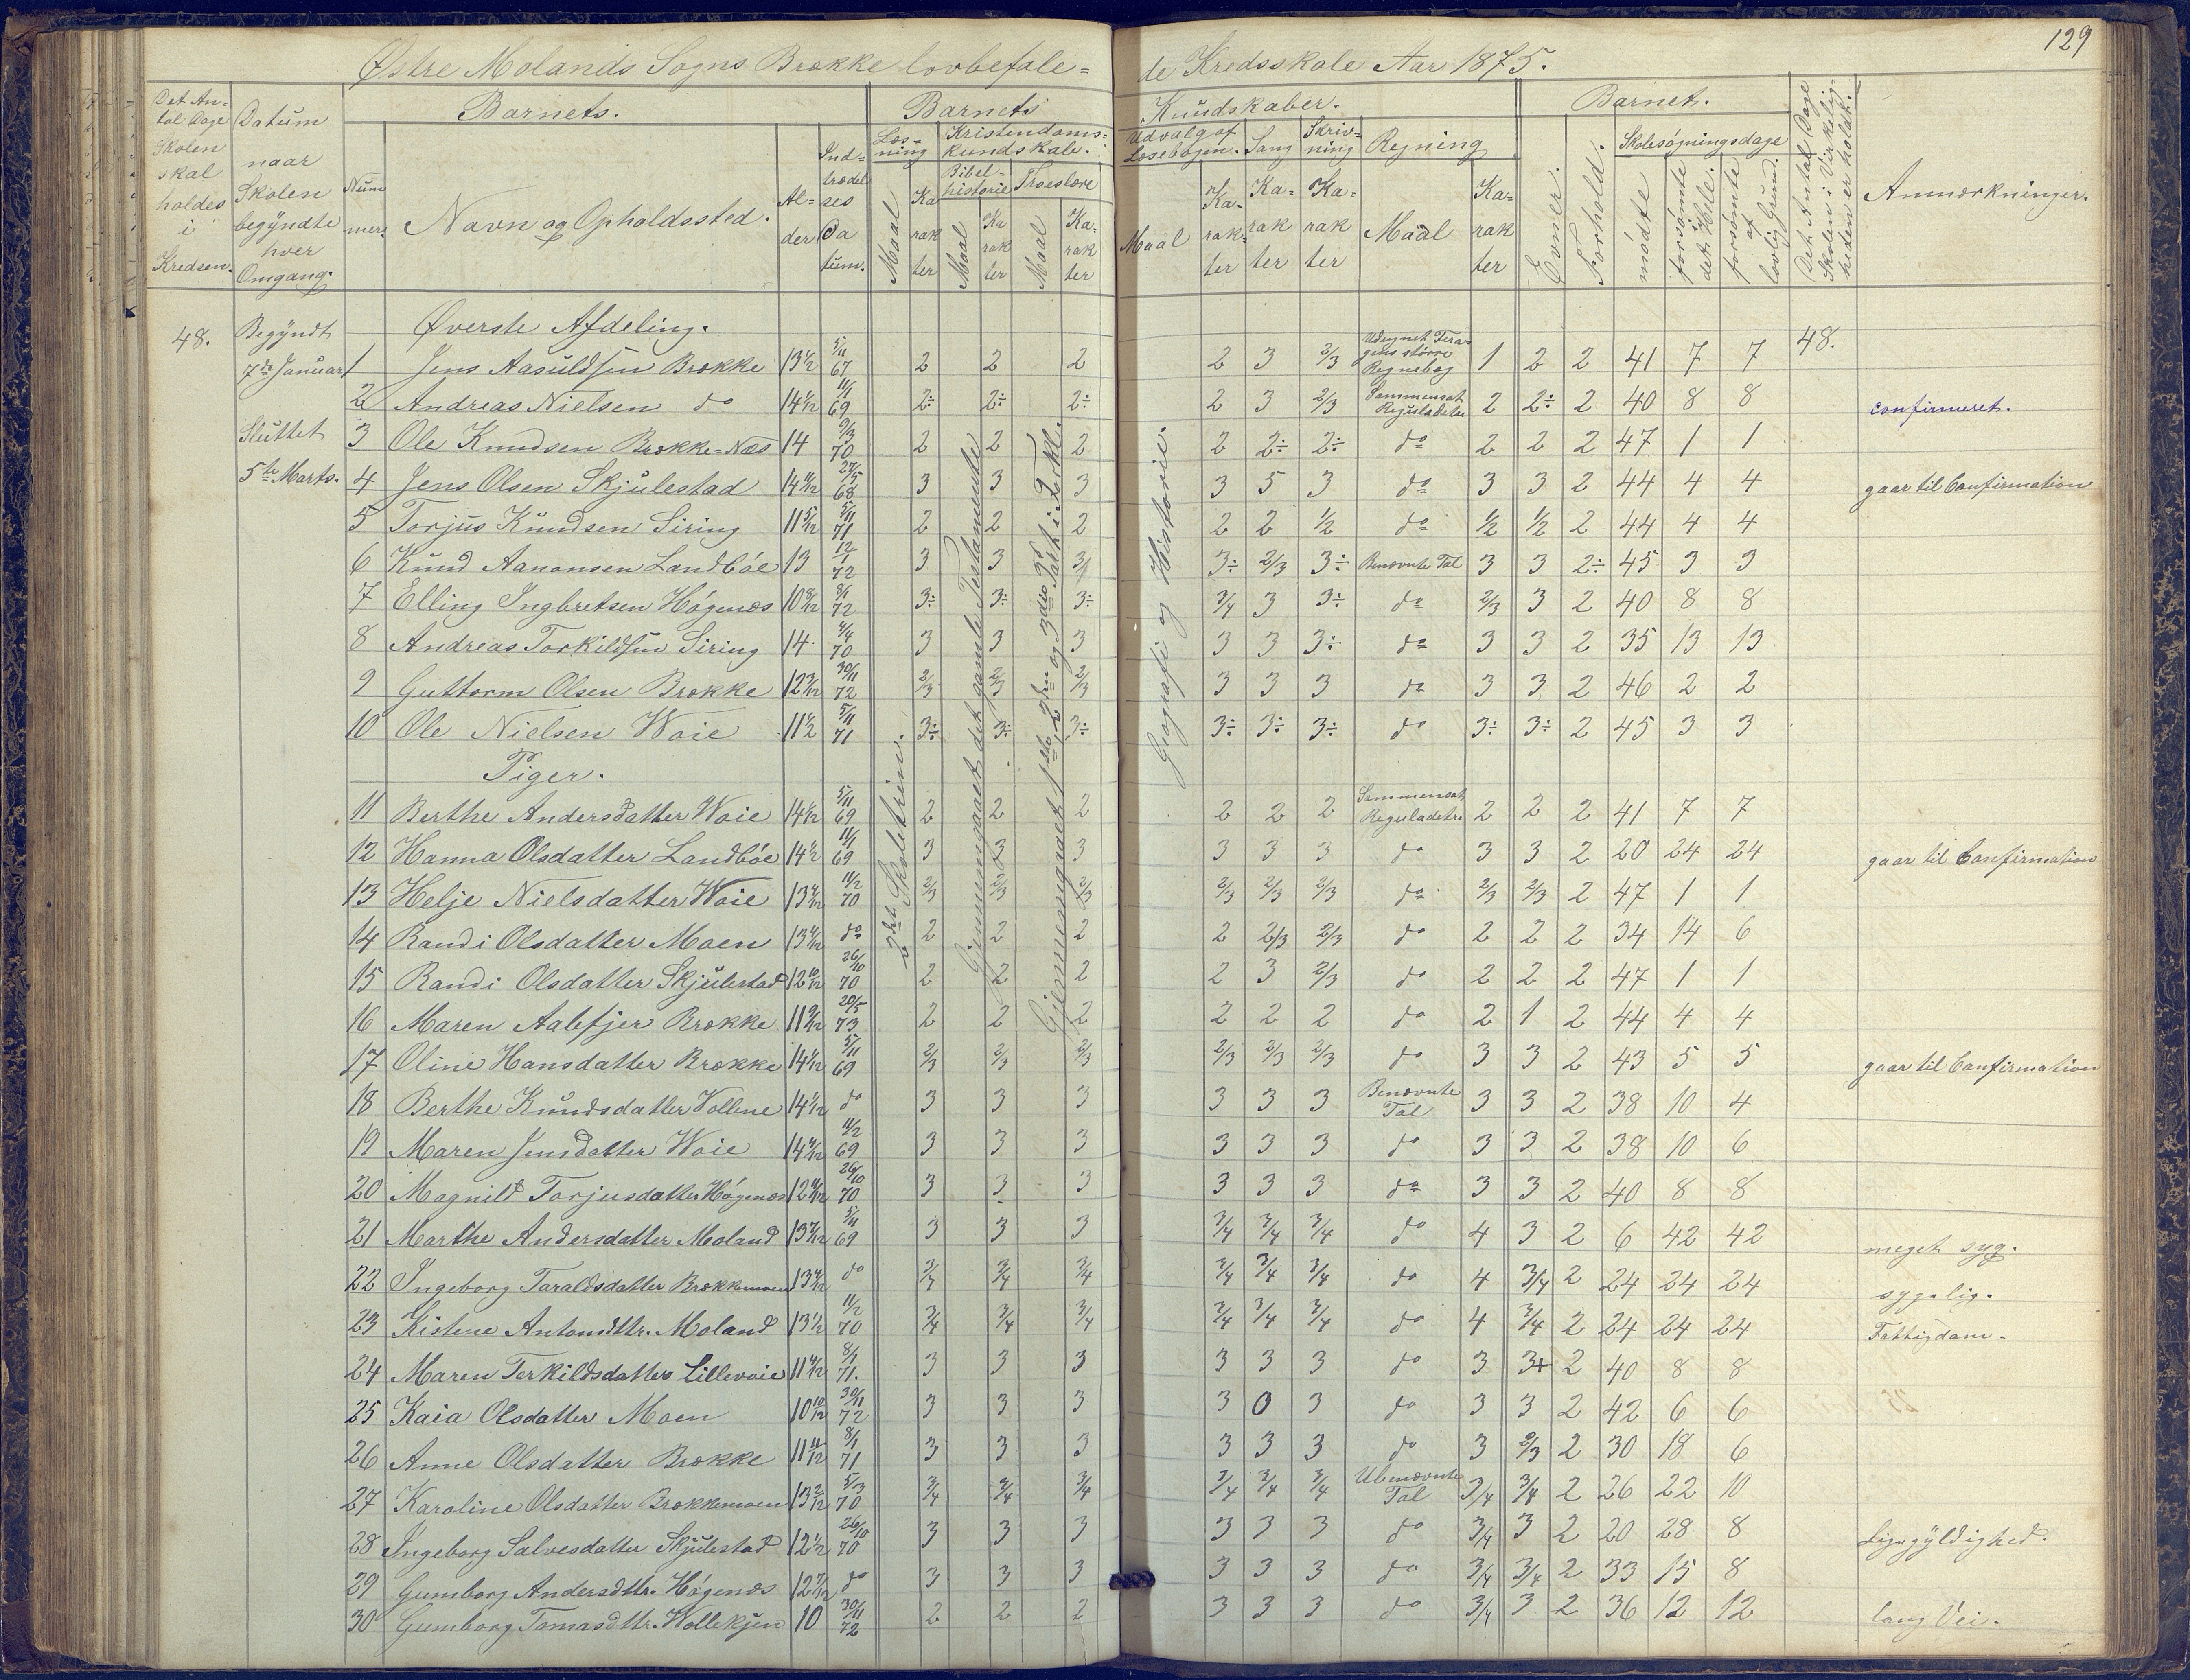 129
Østre Molands Sogns Brække lovbefale=de Kredsskole Aar 1875.
Det An=tal Dage Skolen skal holdes i Kredsen.
Datum naar Skolen begyndte hver Omgang.
Barnets.
Nummer.
Navn og Opholdssted.
Alder
Indtrædelses Datum.
Barnets Kundskaber.
Læsning
Maal
Karakter
Kristendomskundskab.
Bibelhistorie
Maal
Karakter
Troeslære
Maal
Karakter
Udvalg af Læsebogen.
Maal
Karakter
Sang
Karakter
Skrivning
Karakter
Regning
Maal
Karakter
Barnets.
Evner.
Forhold.
Skolesøgningsdage
mødte
forsømte i det Hele.
forsømte af lovlig Grund.
Det Antal Dage Skolen i Virkeligheden er holdt.
Anmærkninger.
48.
Begyndt 7de Januar
Sluttet 5te Marts.
Øverste Afdeling.
48.
3die Skoletrin.
Gjennemgaaet det gamle Testamente
Gjennemgaaet 1ste, 2den og 3die Part i Forkl.
Geografi og Historie.
1 Jens Aasuldsen Brække 13 1/2 5/11 67 2 2 2 2 3 2/3 Udregnet Feragens større Regnebog 1 2 2 41 7 7
2 Andreas Nielsen do 14 1/12 11/1 69 2÷ 2÷ 2÷ 2 3 2/3 Sammensat Reguladetri 2 2÷ 2 40 8 8 confirmeret.
3 Ole Knudsen Brække=Næs 14 9/3 70 2 2 2 2 2÷ 2÷ do 2 2 2 47 1 1
4 Jens Olsen Skjulestad 14 11/12 27/5 68 3 3 3 3 5 3 do 3 3 2 44 4 4 gaar til Confirmation
5 Torjus Knudsen Siring 11 5/12 5/11 71 2 2 2 2 2 1/2 do 1/2 1/2 2 44 4 4
6 Knud Aanonsen Landbøe 13 12/1 72 3 3 3 3÷ 2/3 3÷ Benævnte Tal 3 3 2÷ 45 3 3
7 Elling Ingbretsen Høgenæs 10 8/12 8/1 72 3÷ 3÷ 3÷ 3/4 3 3÷ do 2/3 3 2 40 8 8
8 Andreas Torkildsen Siring 14 4/4 70 3 3 3 3 3 3÷ do 3 3 2 35 13 13
9 Guttorm Olsen Brække 12 3/12 30/11 72 2/3 2/3 2/3 3 3 3 do 3 3 2 46 2 2
10 Ole Nielsen Woie 11 1/2 5/11 71 3÷ 3÷ 3÷ 3÷ 3÷ 3÷ do 3÷ 3÷ 2 45 3 3
Piger.
11 Berthe Andersdatter Woie 14 1/12 5/11 69 2 2 2 2 2 2 Sammensat Reguladetri 2 2 2 41 7 7
12 Hanna Olsdatter Landbøe 14 1/2 11/1 69 3 3 3 3 3 3 do 3 3 2 20 24 24 gaar til Confirmation
13 Helje Nielsdatter Woie 13 4/12 11/2 70 2/3 2/3 2/3 2/3 2/3 2/3 do 2/3 2/3 2 47 1 1
14 Randi Olsdatter Moen 13 4/12 do 2 2 2 2 2/3 2/3 do 2 2 2 34 14 6
15 Randi Olsdatter Skjulestad 12 10/12 26/10 70 2 2 2 2 3 2/3 do 2 2 2 47 1 1
16 Maren Aalefjer Brække 11 9/12 20/5 73 2 2 2 2 2 2 do 2 1 2 44 4 4
17 Oline Hansdatter Brække 14 1/12 5/11 69 2/3 2/3 2/3 2/3 2/3 2/3 do 3 3 2 43 5 5 gaar til Confirmation
18 Berthe Knudsdatter Vollene 14 1/12 do 3 3 3 3 3 3 Benævnte Tal 3 3 2 38 10 4
19 Maren Jensdatter Woie 14 4/12 11/2 69 3 3 3 3 3 3 do 3 3 2 38 10 6
20 Magnild Torjusdatter Høgenæs 12 4/12 26/10 70 3 3 3 3 3 3 do 3 3 2 40 8 8
21 Marthe Andersdatter Moland 13 7/12 5/11 69 3 3 3 3/4 3/4 3/4 do 4 3 2 6 42 42 meget syg.
22 Ingeborg Taraldsdatter Brækkemoen 13 4/12 do 3/4 3/4 3/4 3/4 3/4 3/4 do 4 3/4 2 24 24 24 sygelig.
23 Kistene Antonsdttr. Moland 13 1/2 11/2 70 3/4 3/4 3/4 3/4 3/4 3/4 do 4 3/4 2 24 24 24 Fattigdom.
24 Maren Terkildsdatter Lillevoie 11 4/12 8/1 71. 3 3 3 3 3 3 do 3 3+ 2 40 8 8
25 Kaia Olsdatter Moen 10 10/12 30/11 72 3 3 3 3 0 3 do 3 3 2 42 6 6
26 Anne Olsdatter Brække 11 11/12 8/1 71 3 3 3 3 3 3 do 3 2/3 2 30 18 6
27 Karoline Olsdatter Brækkemoen 13 2/12 5/3 70 3/4 3/4 3/4 3/4 3/4 3/4 Ubenævnte Tal 3/4 3/4 2 26 22 10
28 Ingeborg Salvesdatter Skjulestad 12 1/2 26/10 70 3 3 3 3 3 3 do 3/4 3 2 20 28 8 Ligegyldighed.
29 Gumborg Andersdttr. Høgenæs 12 7/12 do 3 3 3 3 3 3 do 3/4 3/4 2 33 15 8
30 Gumborg Tomasdttr. Wollekjen 10 30/11 72 2 2 2 3 3 3 do 3/4 3 2 36 12 12 lang Vei.